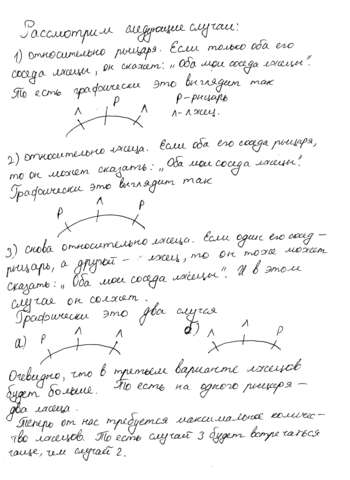 Рассмотрим следующие случаи:
1) относительно рыцаря. Если только оба его
соседа лжецы, он скажет: „Оба мои соседа лжецы".
То есть графически это выглядит так
Л Р Л Р - рыцарь
Л - лжец.
2) относительно лжеца. Если оба его соседа рыцаря,
то он может сказать: „Оба мои соседа лжецы".
Графически это выглядит так
Р Л Р
3) снова относительно лжеца. Если один его сосед -
рыцарь, а другой - лжец, то он тоже может
сказать: „Оба мои соседа лжецы". И в этом
случае он солжет.
Графически это два случая
а) Р Л Л б) Л Л Р
Очевидно, что в третьем варианте лжецов
будет больше. То есть на одного рыцаря -
два лжеца.
Теперь от нас требуется максимальное количес-
тво лжецов. То есть случай 3 будет встречаться
чаще, чем случай 2.